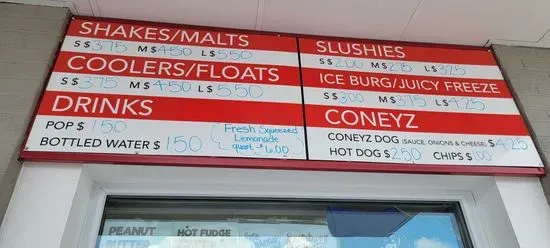 SHAKES/MALTS
S $ 3.75 M $ 4.50 L $ 5.50
COOLERS/FLOATS
S $ 3.75 M $ 4.50 L $ 5.50
DRINKS
POP $ 1.50
BOTTLED WATER $ 1.50
Fresh Squeezed
Lemonade
quart $ 6.00
SLUSHIES
S $ 2.00 M $ 2.75 L $ 3.25
ICE BURG/JUICY FREEZE
S $ 3.00 M $ 3.75 L $ 4.25
CONEYZ
CONEY DOG (SAUCE, ONIONS & CHEESE) $ 4.25
HOT DOG $ 2.50 CHIPS $ 1.00
PEANUT HOT FUDGE
BUTTER